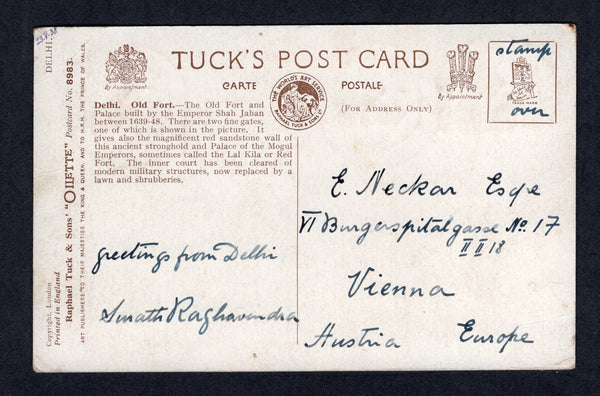 TUCK'S POST CARD
CARTE POSTALE
(FOR ADDRESS ONLY)
By Appointment
THE WORLD'S ART SERVICE
RAPHAEL TUCK & SONS LTD
By Appointment
stamp
TRADE MARK
over
Delhi. Old Fort.—The Old Fort and
Palace built by the Emperor Shah Jahan
between 1639-48. There are two fine gates,
one of which is shown in the picture. It
gives also the magnificent red sandstone wall of
this ancient stronghold and Palace of the Mogul
Emperors, sometimes called the Lal Kila or Red
Fort. The inner court has been cleared of
modern military structures, now replaced by a
lawn and shrubberies.
greetings from Delhi
Raghavendra
E. Neckar Esqe
VI Burgerspitalgasse No. 17
II II 18
Vienna
Austria Europe
DELHI.
Raphael Tuck & Sons' "OILETTE" Postcard No. 8983.
ART PUBLISHERS TO THEIR MAJESTIES THE KING & QUEEN, AND TO H.R.H. THE PRINCE OF WALES.
Copyright, London
Printed in England